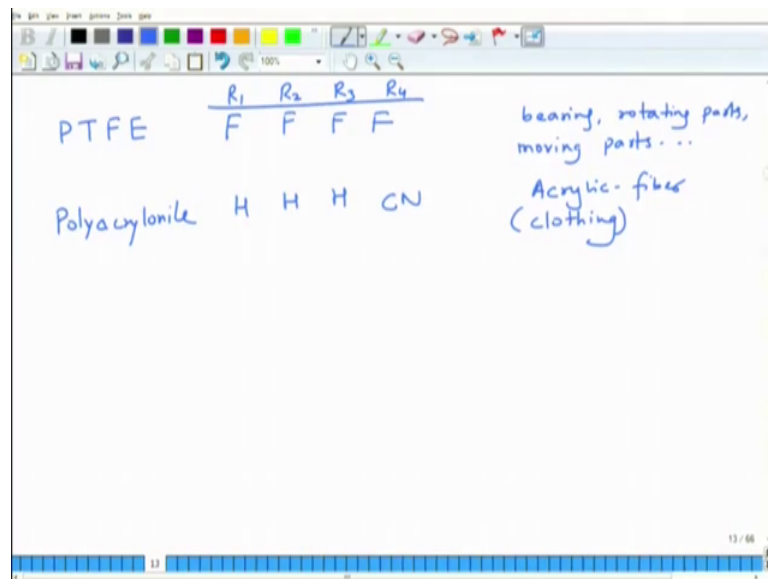 File Edit View Insert Actions Tools Help
B I
100%
R1 R2 R3 R4
PTFE F F F F bearing, rotating parts,
moving parts...
Polyacrylonile H H H CN Acrylic-fiber
(clothing)
13/66
13